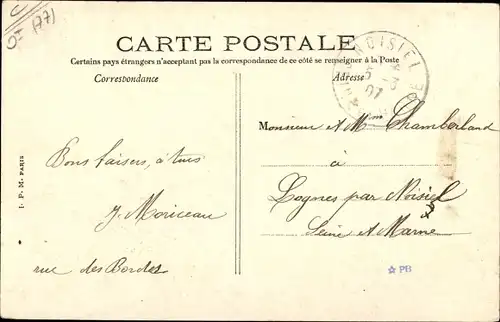 C
OI (77)
CARTE POSTALE
Certains pays étrangers n'acceptant pas la correspondance de ce côté se renseigner à la Poste
Correspondance
Adresse
NOISIEL
07
Monsieur et Mme Chamberland
à
Lognes par Noisiel
Seine et Marne
Bons baisers, à tous
J. Moriceau
rue des Bordes
I. P. M. PARIS
☆ PB